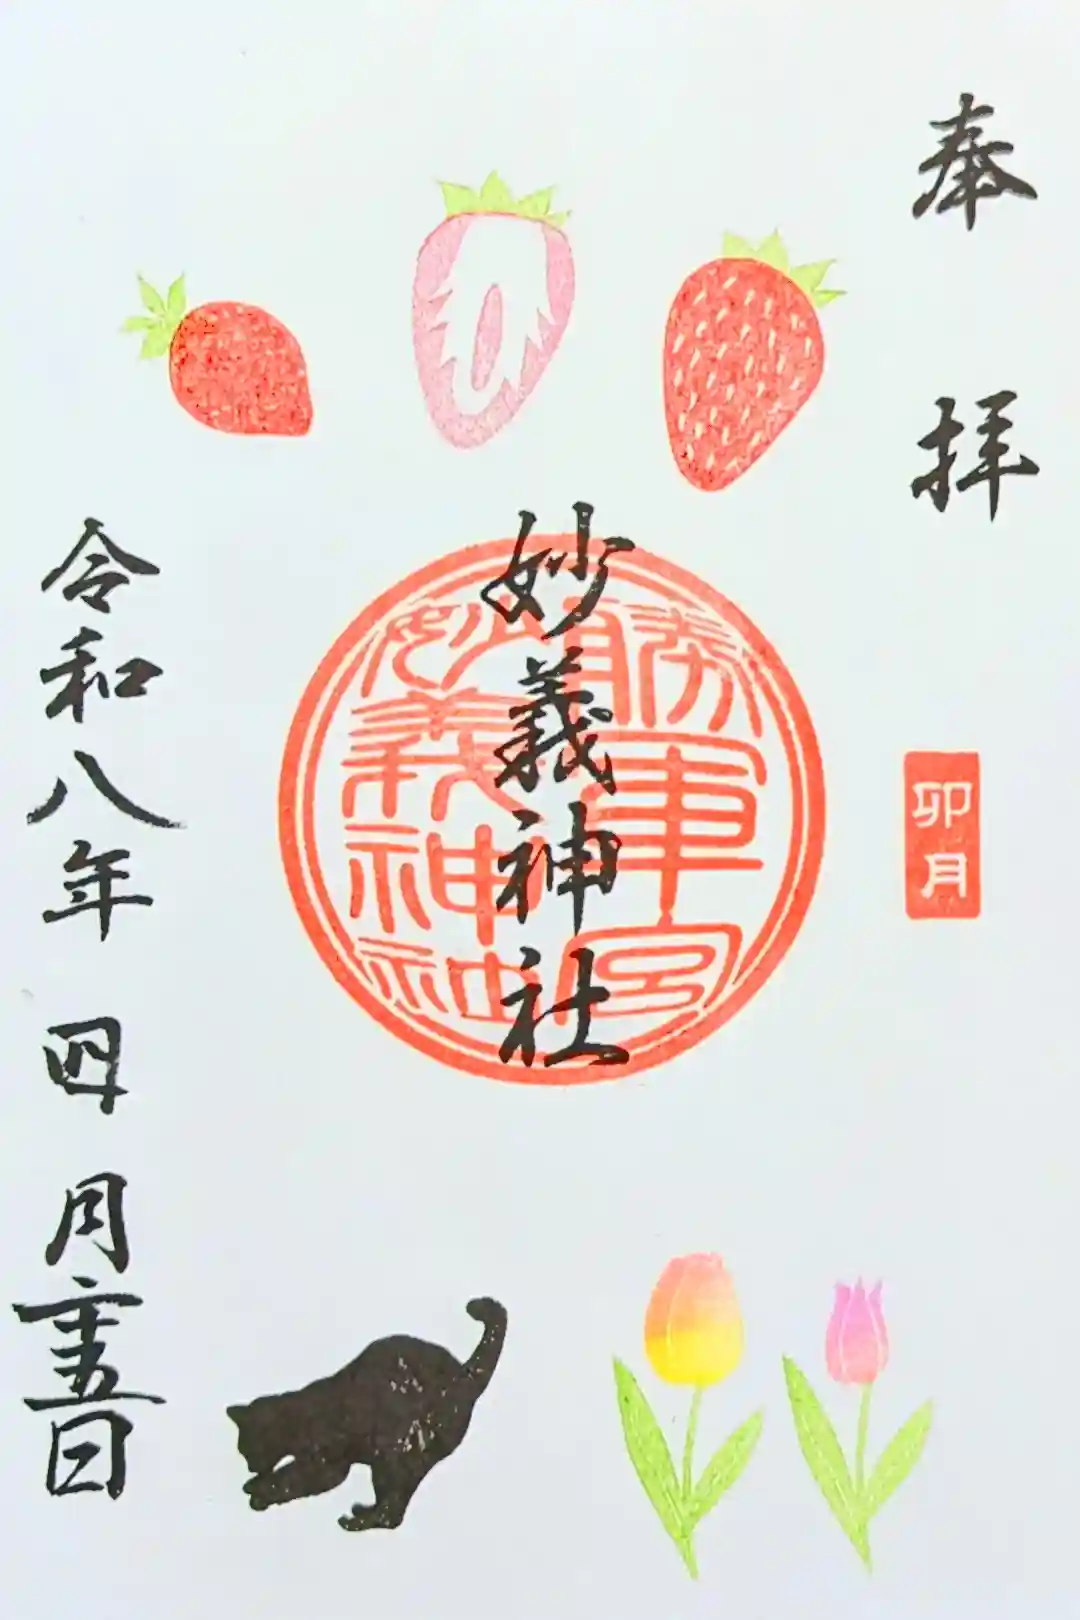 奉拝
卯月
妙義神社
勝軍宮
妙義神社
令和八年 四月二十五日